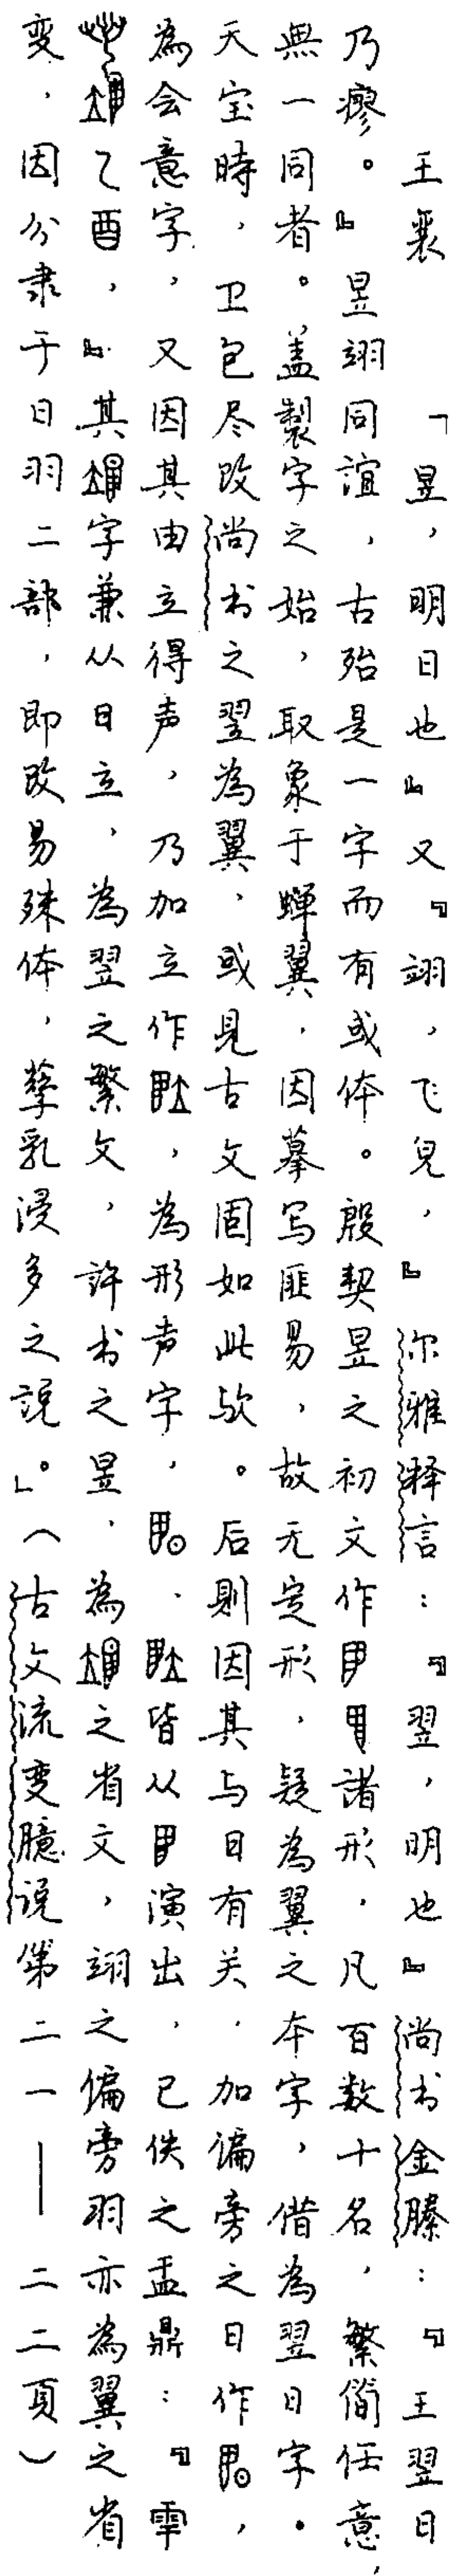 王襄 「昱，明日也』又『翊，飞皃，』尔雅释言：『翌，明也』尚书金縢：『王翌日
乃瘳。』昱翊同誼，古殆是一字而有或体。殷契昱之初文作諸形，凡百数十名，繁简任意，
無一同者。盖製字之始，取象于蝉翼，因摹写匪易，故无定形，疑為翼之本字，借為翌日字。
天宝時，卫包尽改尚书之翌為翼，或見古文固如此欤。后則因其与日有关，加偏旁之日作，
為会意字，又因其由立得声，乃加立作，為形声字，、皆从演出，已佚之盂鼎：『雩
乙酉，』其字兼从日立，為翌之繁文，許书之昱，為之省文，翊之偏旁羽亦為翼之省
変，因分隶于日羽二部，即改易殊体，孳乳浸多之說。」（古文流变臆说第二一——二二頁）